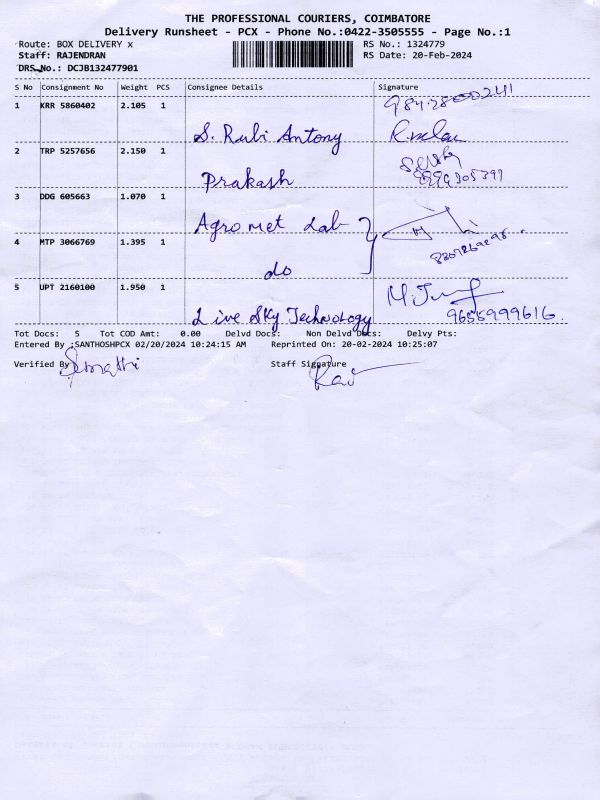 THE PROFESSIONAL COURIERS, COIMBATORE
Delivery Runsheet - PCX - Phone No.:0422-3505555 - Page No.:1
Route: BOX DELIVERY x RS No.: 1324779
Staff: RAJENDRAN RS Date: 20-Feb-2024
DRS No.: DCJB132477901
S No Consignment No Weight PCS Consignee Details Signature
1 KRR 5860402 2.105 1
S. Rubi Antony
2 TRP 5257656 2.150 1
Prakash
3 DDG 605663 1.070 1
Agromet Lab
4 MTP 3066769 1.395 1
do
5 UPT 2160100 1.950 1
Live Sky Technology 9655999616.
Tot Docs: 5 Tot COD Amt: 0.00 Delvd Docs: Non Delvd Docs: Delvy Pts:
Entered By :SANTHOSHPCX 02/20/2024 10:24:15 AM Reprinted On: 20-02-2024 10:25:07
Verified By Staff Signature